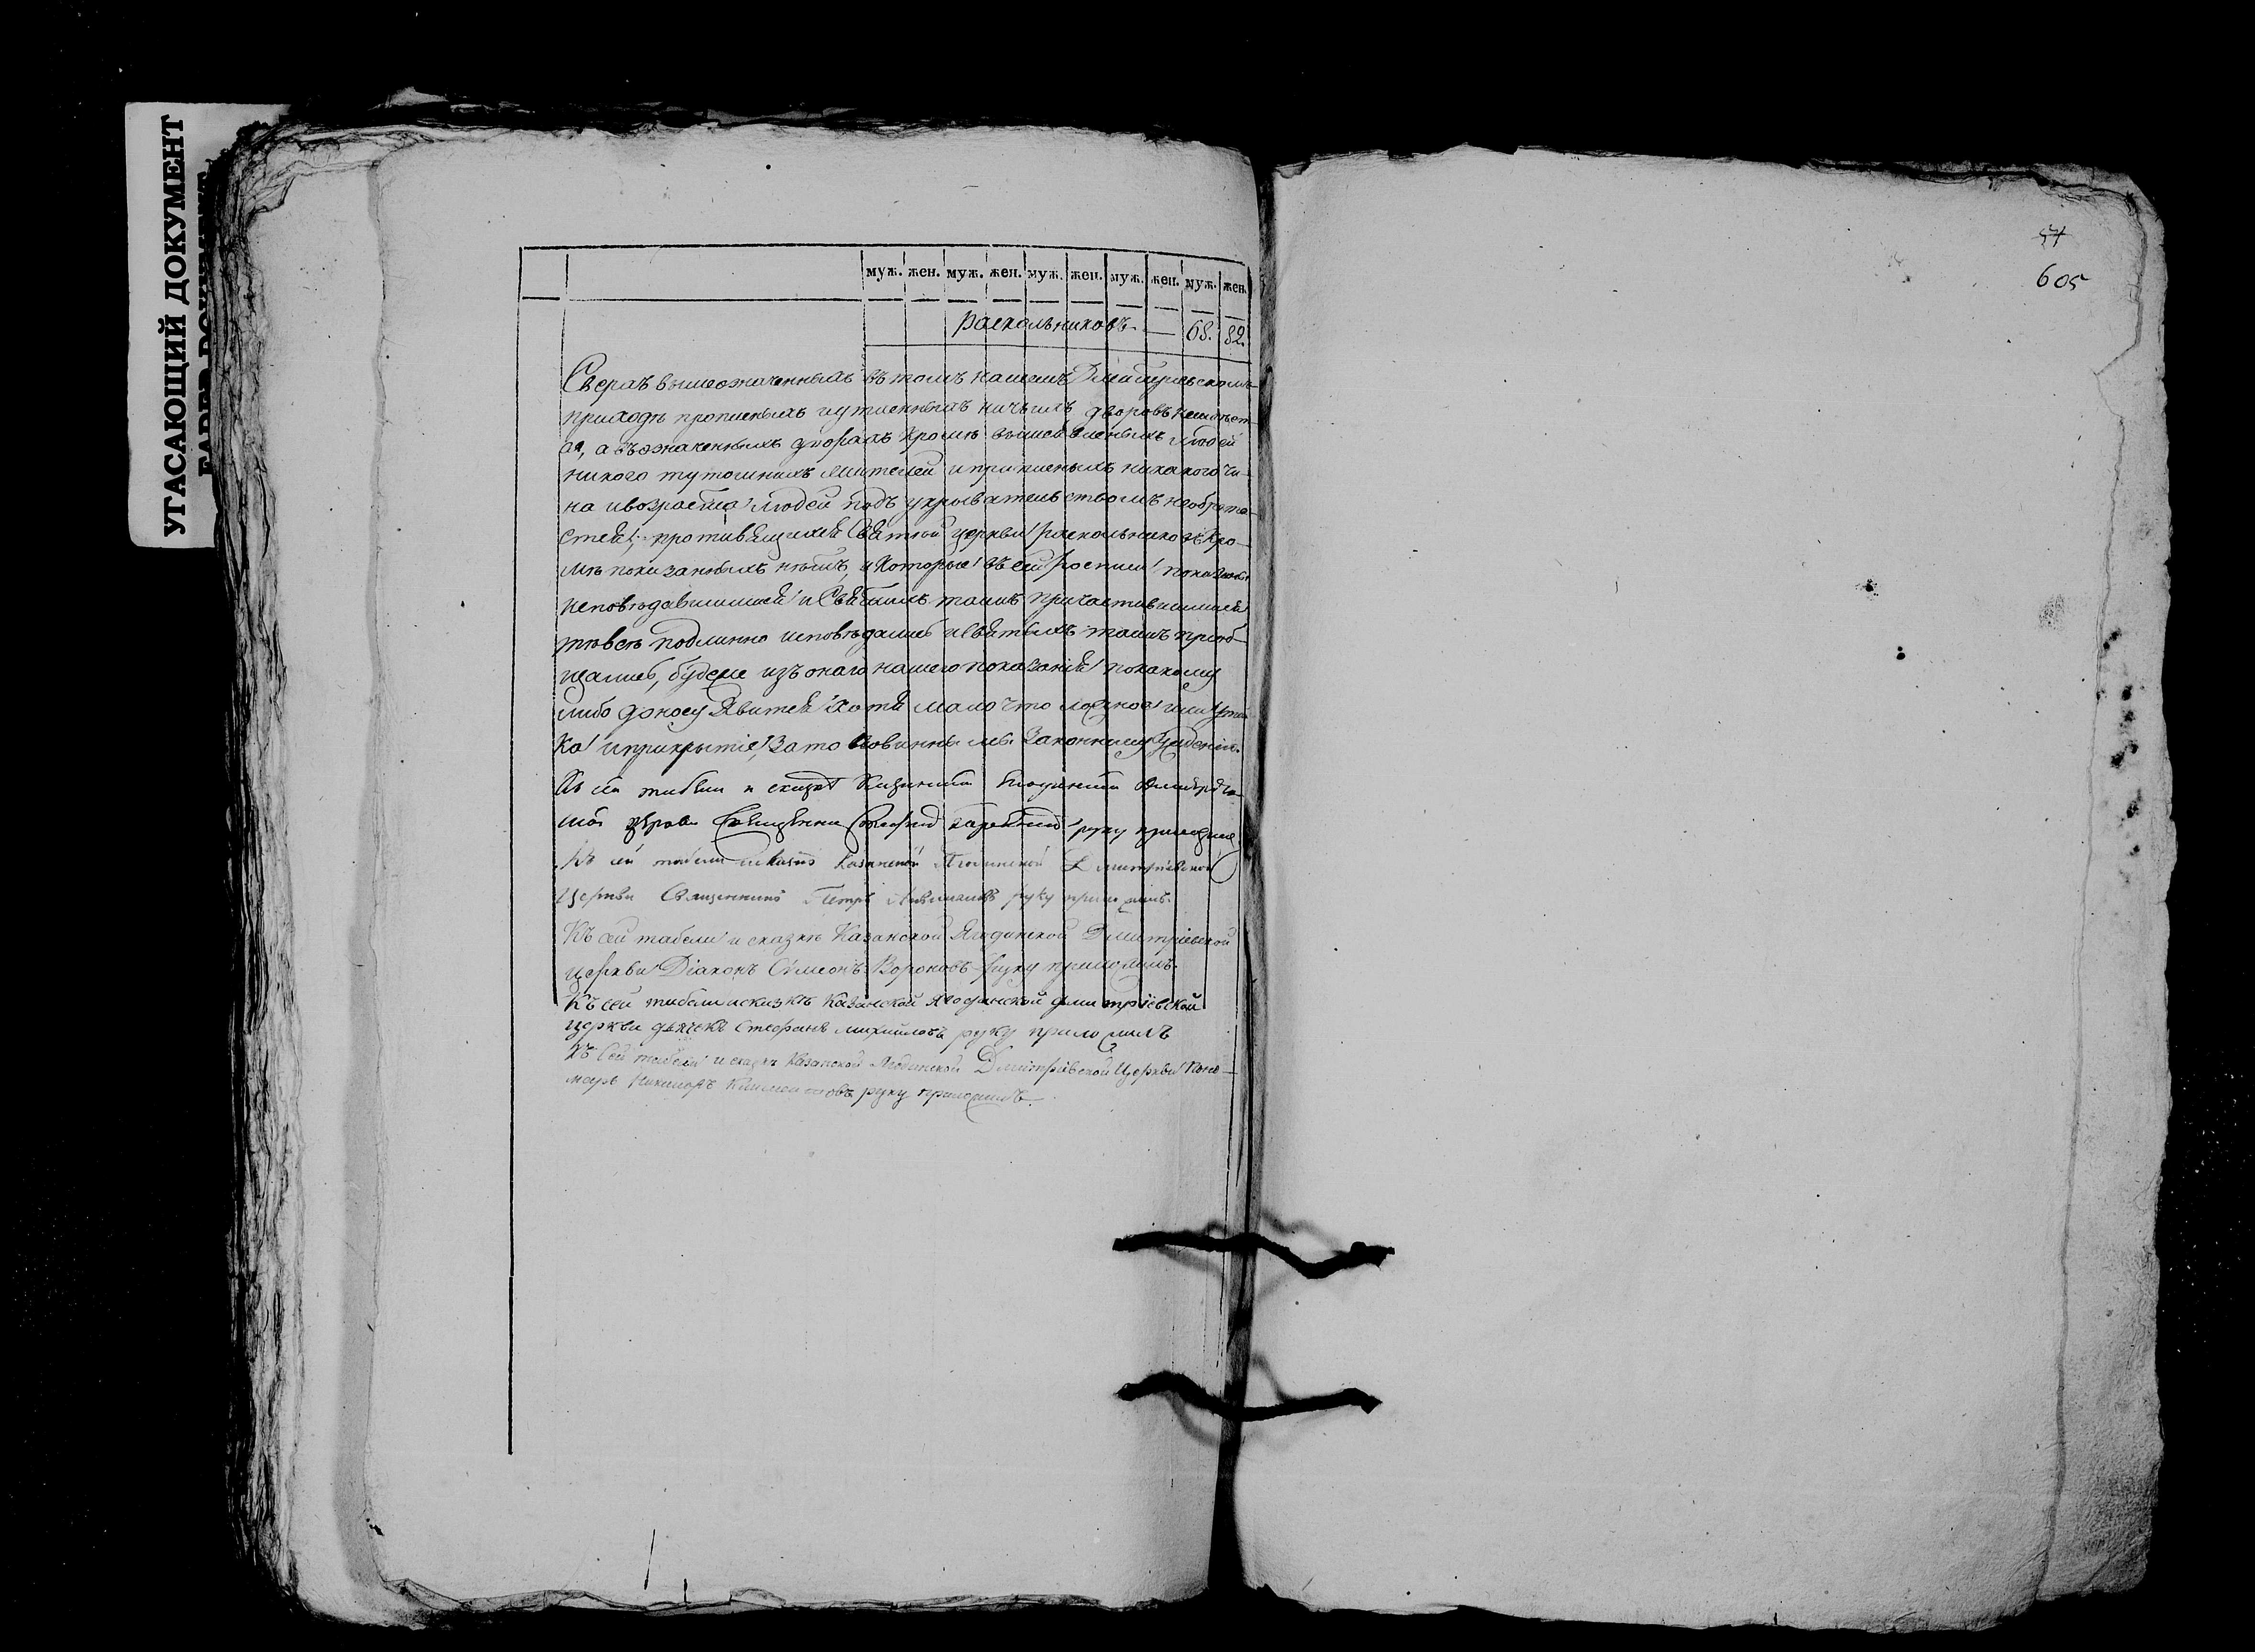 УГАСАЮЩИЙ ДОКУМЕНТ
муж. жен. муж. жен. муж. жен. муж. жен. муж. жен.
раскольниковъ — 68. 82.
Сверхъ вышеозначенныхъ въ томъ нашемъ Дмитріевскомъ
приходѣ прописныхъ и утаенныхъ ничьихъ дворовъ
а въозначенныхъ дворахъ кромѣ людей
никого тутошнихъ жителей и приписныхъ никакого чи-
на ивозраста людей подъ укрывательствомъ необрета-
етися, противящихся Святой церкви раскольниковъ кро-
мѣ показанныхъ нѣтъ, а которые въ сей росписи показаны
исповѣдавшимися и Святыхъ таинъ причастившимися
тѣ всѣ подлинно исповѣдались исвятыхъ таинъ приоб-
щались, будеже изъ онаго нашего показанія покакому
либо доносу явится хотя мало что ложное или утай
ка иприкрытіе, зато повинны мы законному сужденію.
Къ сей табели и сказкѣ Казанской Ягодинской Дмитріев-
ской церкви Священникъ руку приложилъ
Къ сей табели исказкѣ Казанской Ягодинской Дмитріевской
Церкви Священникъ Петръ руку приложилъ.
Къ сей табели и сказкѣ Казанской Ягодинской Дмитріевской
церкви Діаконъ Сѵмеонъ Вороновъ руку приложилъ.
Къ сей табели исказкѣ Казанской Ягодинской Дмитріевской
церкви дьячекъ Стефанъ Михайловъ руку приложилъ
Къ Сей табели и сказкѣ Казанской Ягодинской Дмитріевской Церкви Поно-
марь Никифоръ руку приложилъ.
57
605